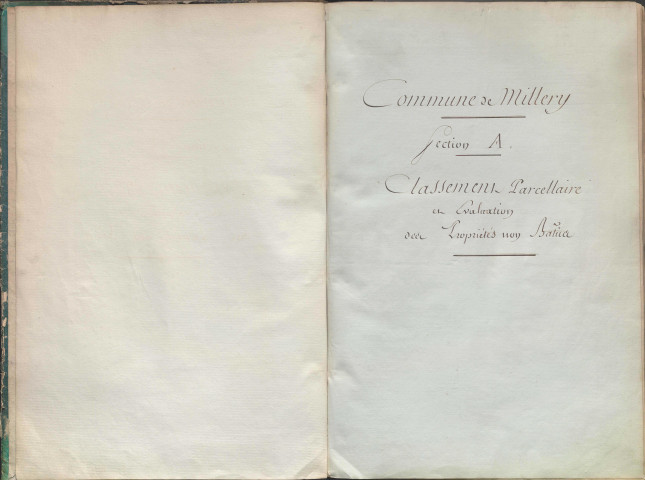 Commune de Millery
Section A.
Classement Parcellaire
et Evaluation
des Propriétés non Baties